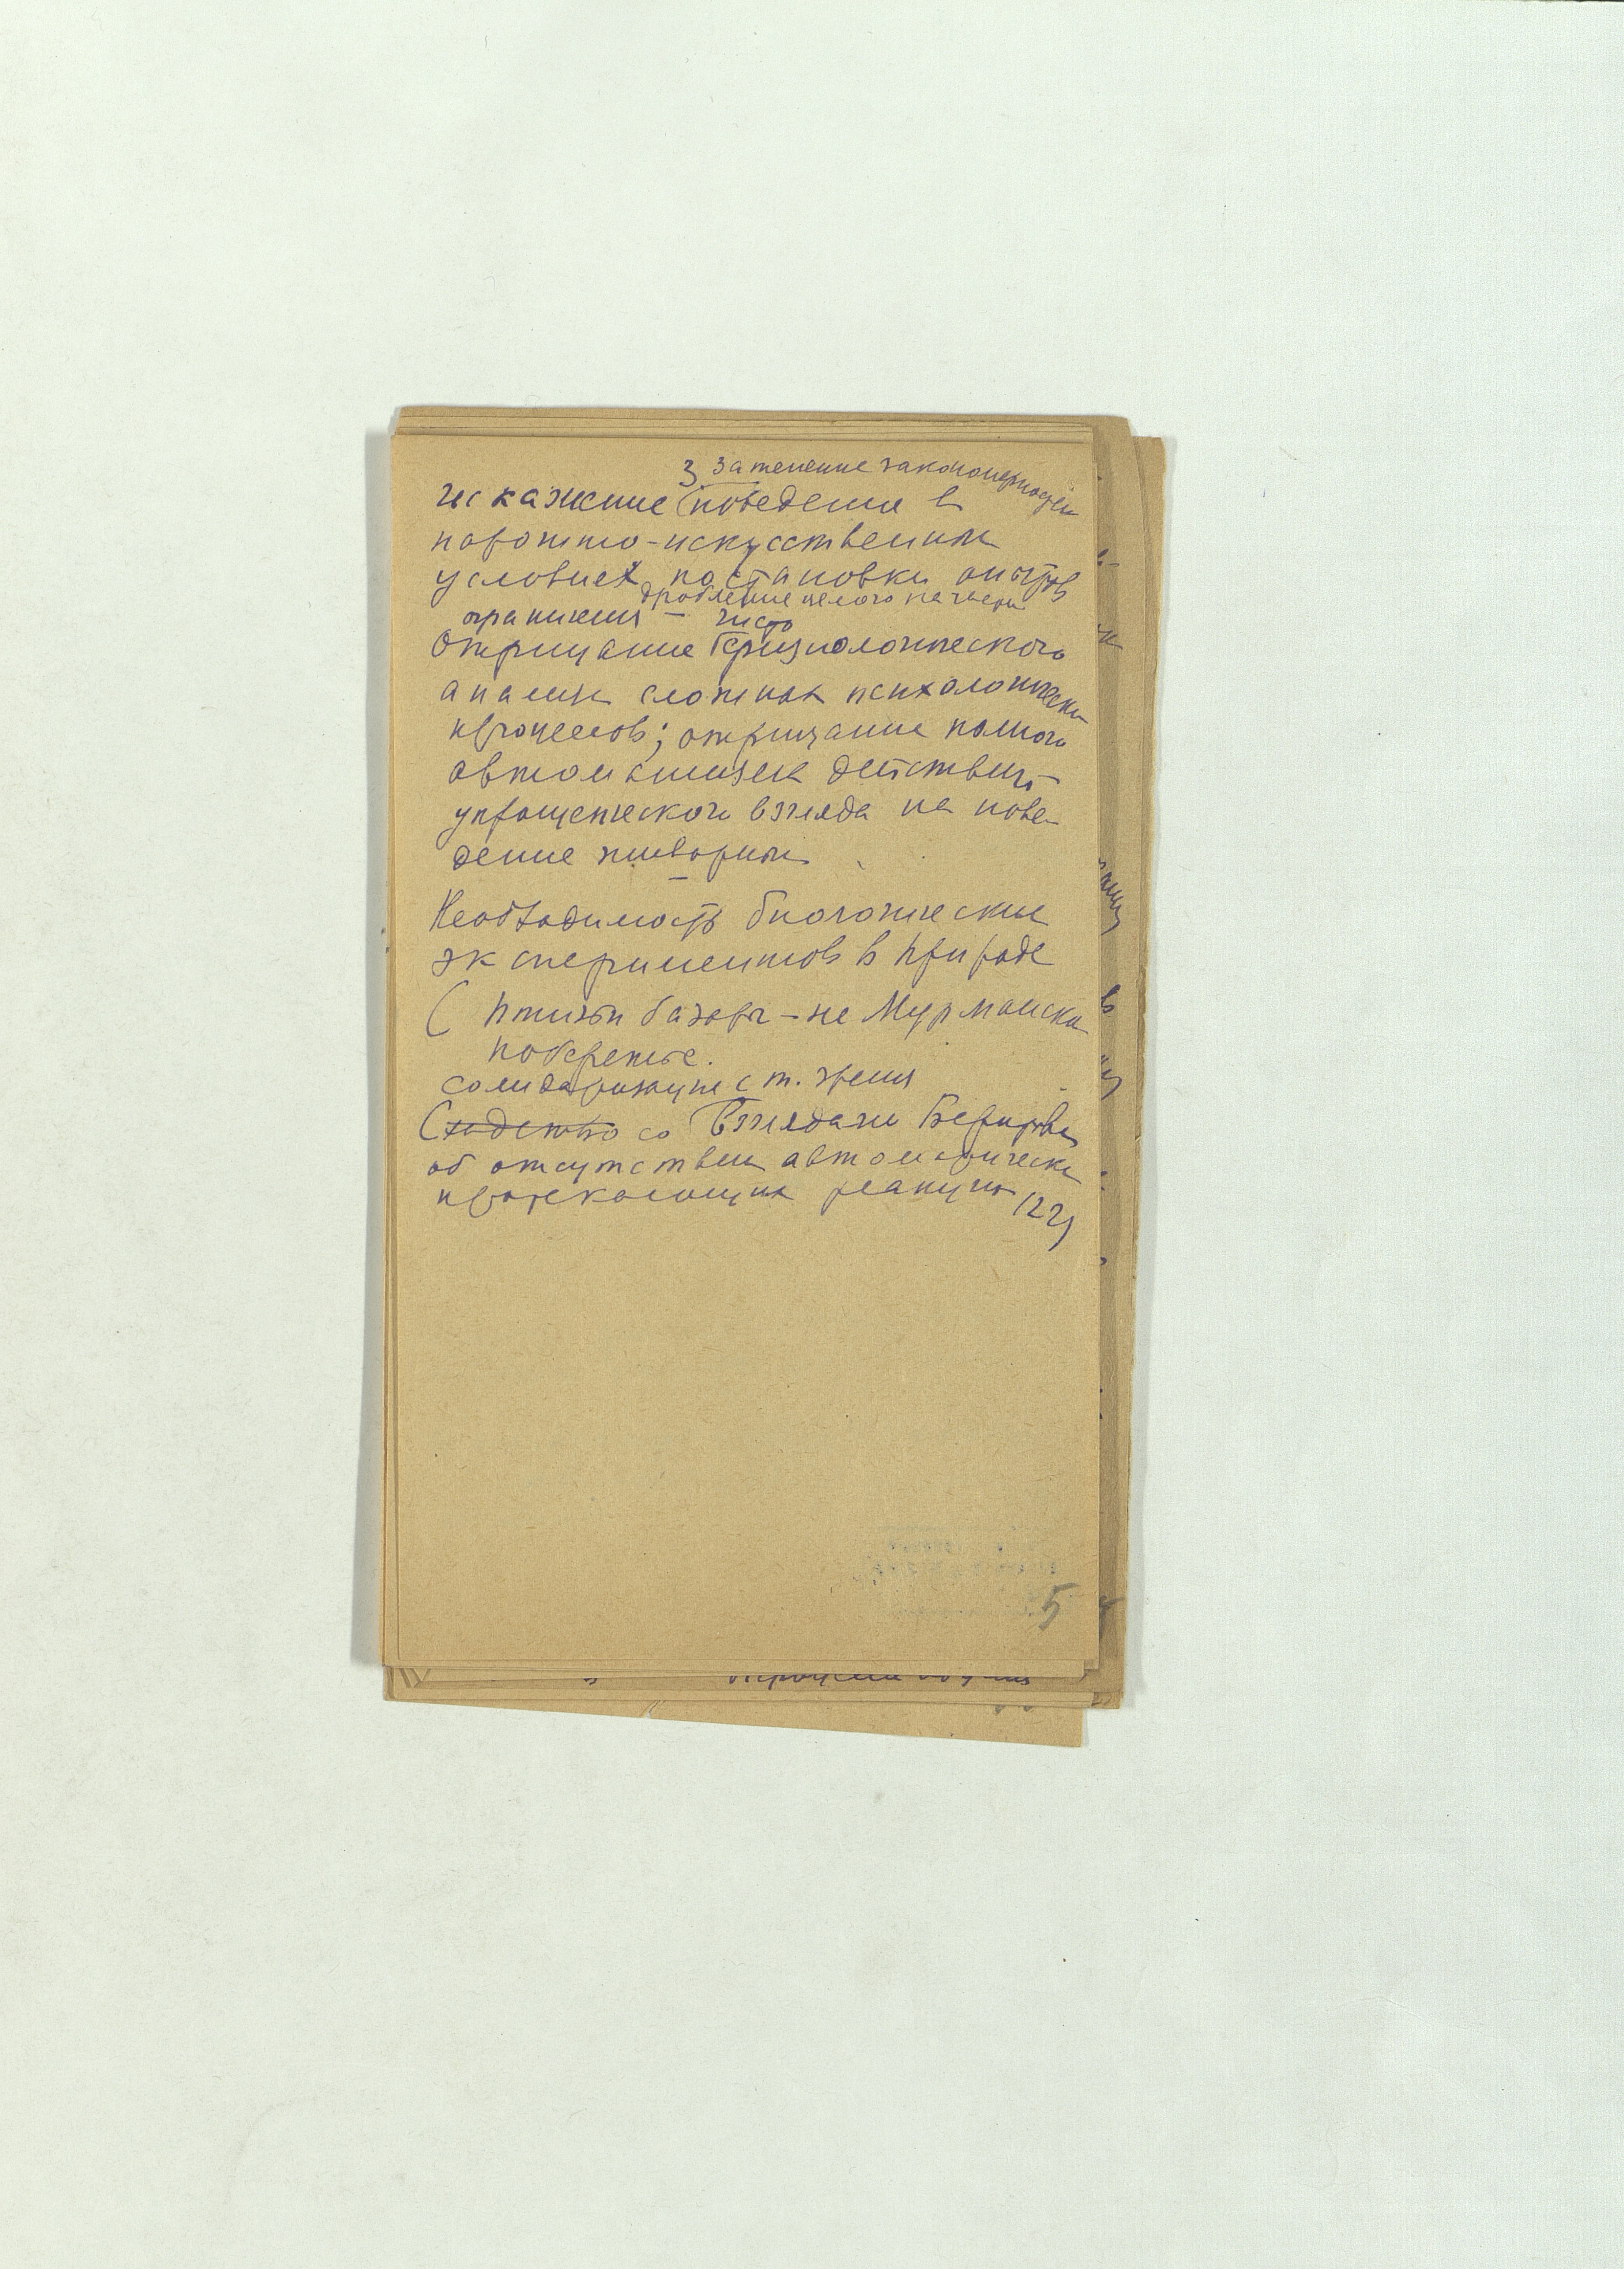 3 Затемнение закономерностей
Искажение поведения в
нарошито-искусственных
условиях постановки опытов
дробление целого на части
ограничения – чисто
Отрицание физиологического
анализа сложных психологических
процессов; отрицание полного
автоматизма действий –
упрощенческого взгляда на пове-
дение животных
Необходимость биологических
экспериментов в природе
( Птичьи базары – на Мурманском
побережье.
солидаризация с т. зрения
Сходство со взглядами
об отсутствии автоматически
протекающих реакций 122)
5